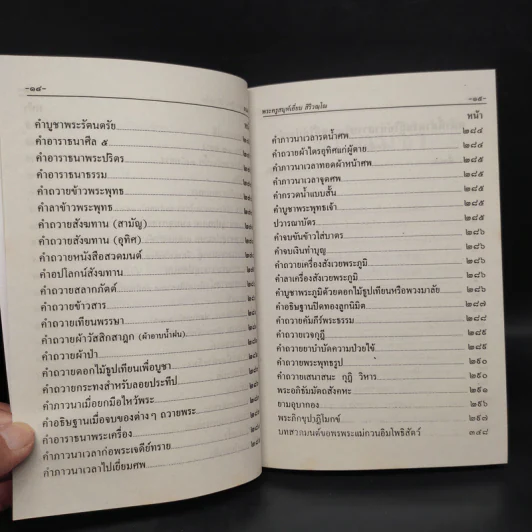 -๑๔-
คำบูชาพระรัตนตรัย
คำอาราธนาศีล ๕
คำอาราธนาพระปริตร
คำอาราธนาธรรม
คำถวายข้าวพระพุทธ
คำลาข้าวพระพุทธ
คำถวายสังฆทาน (สามัญ)
คำถวายสังฆทาน (อุทิศ)
คำถวายหนังสือสวดมนต์
คำอปโลกน์สังฆทาน
คำถวายสลากภัตต์
คำถวายข้าวสาร
คำถวายเทียนพรรษา
คำถวายผ้าวัสสิกสาฎก (ผ้าอาบน้ำฝน)
คำถวายผ้าป่า
คำถวายดอกไม้ธูปเทียนเพื่อบูชา
คำถวายกระทงสำหรับลอยประทีป
คำภาวนาเมื่อยกมือไหว้พระ
คำอธิษฐานเมื่อจบของต่างๆ ถวายพระ
คำอาราธนาพระเครื่อง
คำภาวนาเวลาก่อพระเจดีย์ทราย
คำภาวนาเวลาไปเยี่ยมศพ
-๑๕-
หน้า
คำภาวนาเวลารดน้ำศพ ๒๘๔
คำถวายผ้าไตรอุทิศแก่ผู้ตาย ๒๘๔
คำภาวนาเวลาทอดผ้าหน้าศพ ๒๘๕
คำภาวนาเวลาจุดศพ ๒๘๕
คำกรวดน้ำแบบสั้น ๒๘๕
คำบูชาพระพุทธเจ้า ๒๘๕
ปวารณาบัตร ๒๘๕
คำจบขันข้าวใส่บาตร ๒๘๖
คำจบเงินทำบุญ ๒๘๖
คำถวายเครื่องสังเวยพระภูมิ ๒๘๖
คำลาเครื่องสังเวยพระภูมิ ๒๘๖
คำบูชาพระภูมิด้วยดอกไม้ธูปเทียนหรือพวงมาลัย ๒๘๖
คำอธิษฐานปิดทองลูกนิมิต ๒๘๗
คำถวายคัมภีร์พระธรรม ๒๘๘
คำถวายเวจกุฎี ๒๘๙
คำถวายยาบำบัดความป่วยไข้ ๒๘๙
คำถวายพระพุทธรูป ๒๙๐
คำถวายเสนาสนะ กุฏี วิหาร ๒๙๐
พระอภิธัมมัตถสังคหะ ๒๙๑
ยามอุบากอง ๒๙๖
พระภิกขุปาฏิโมกข์ ๒๙๗
๓๔๘